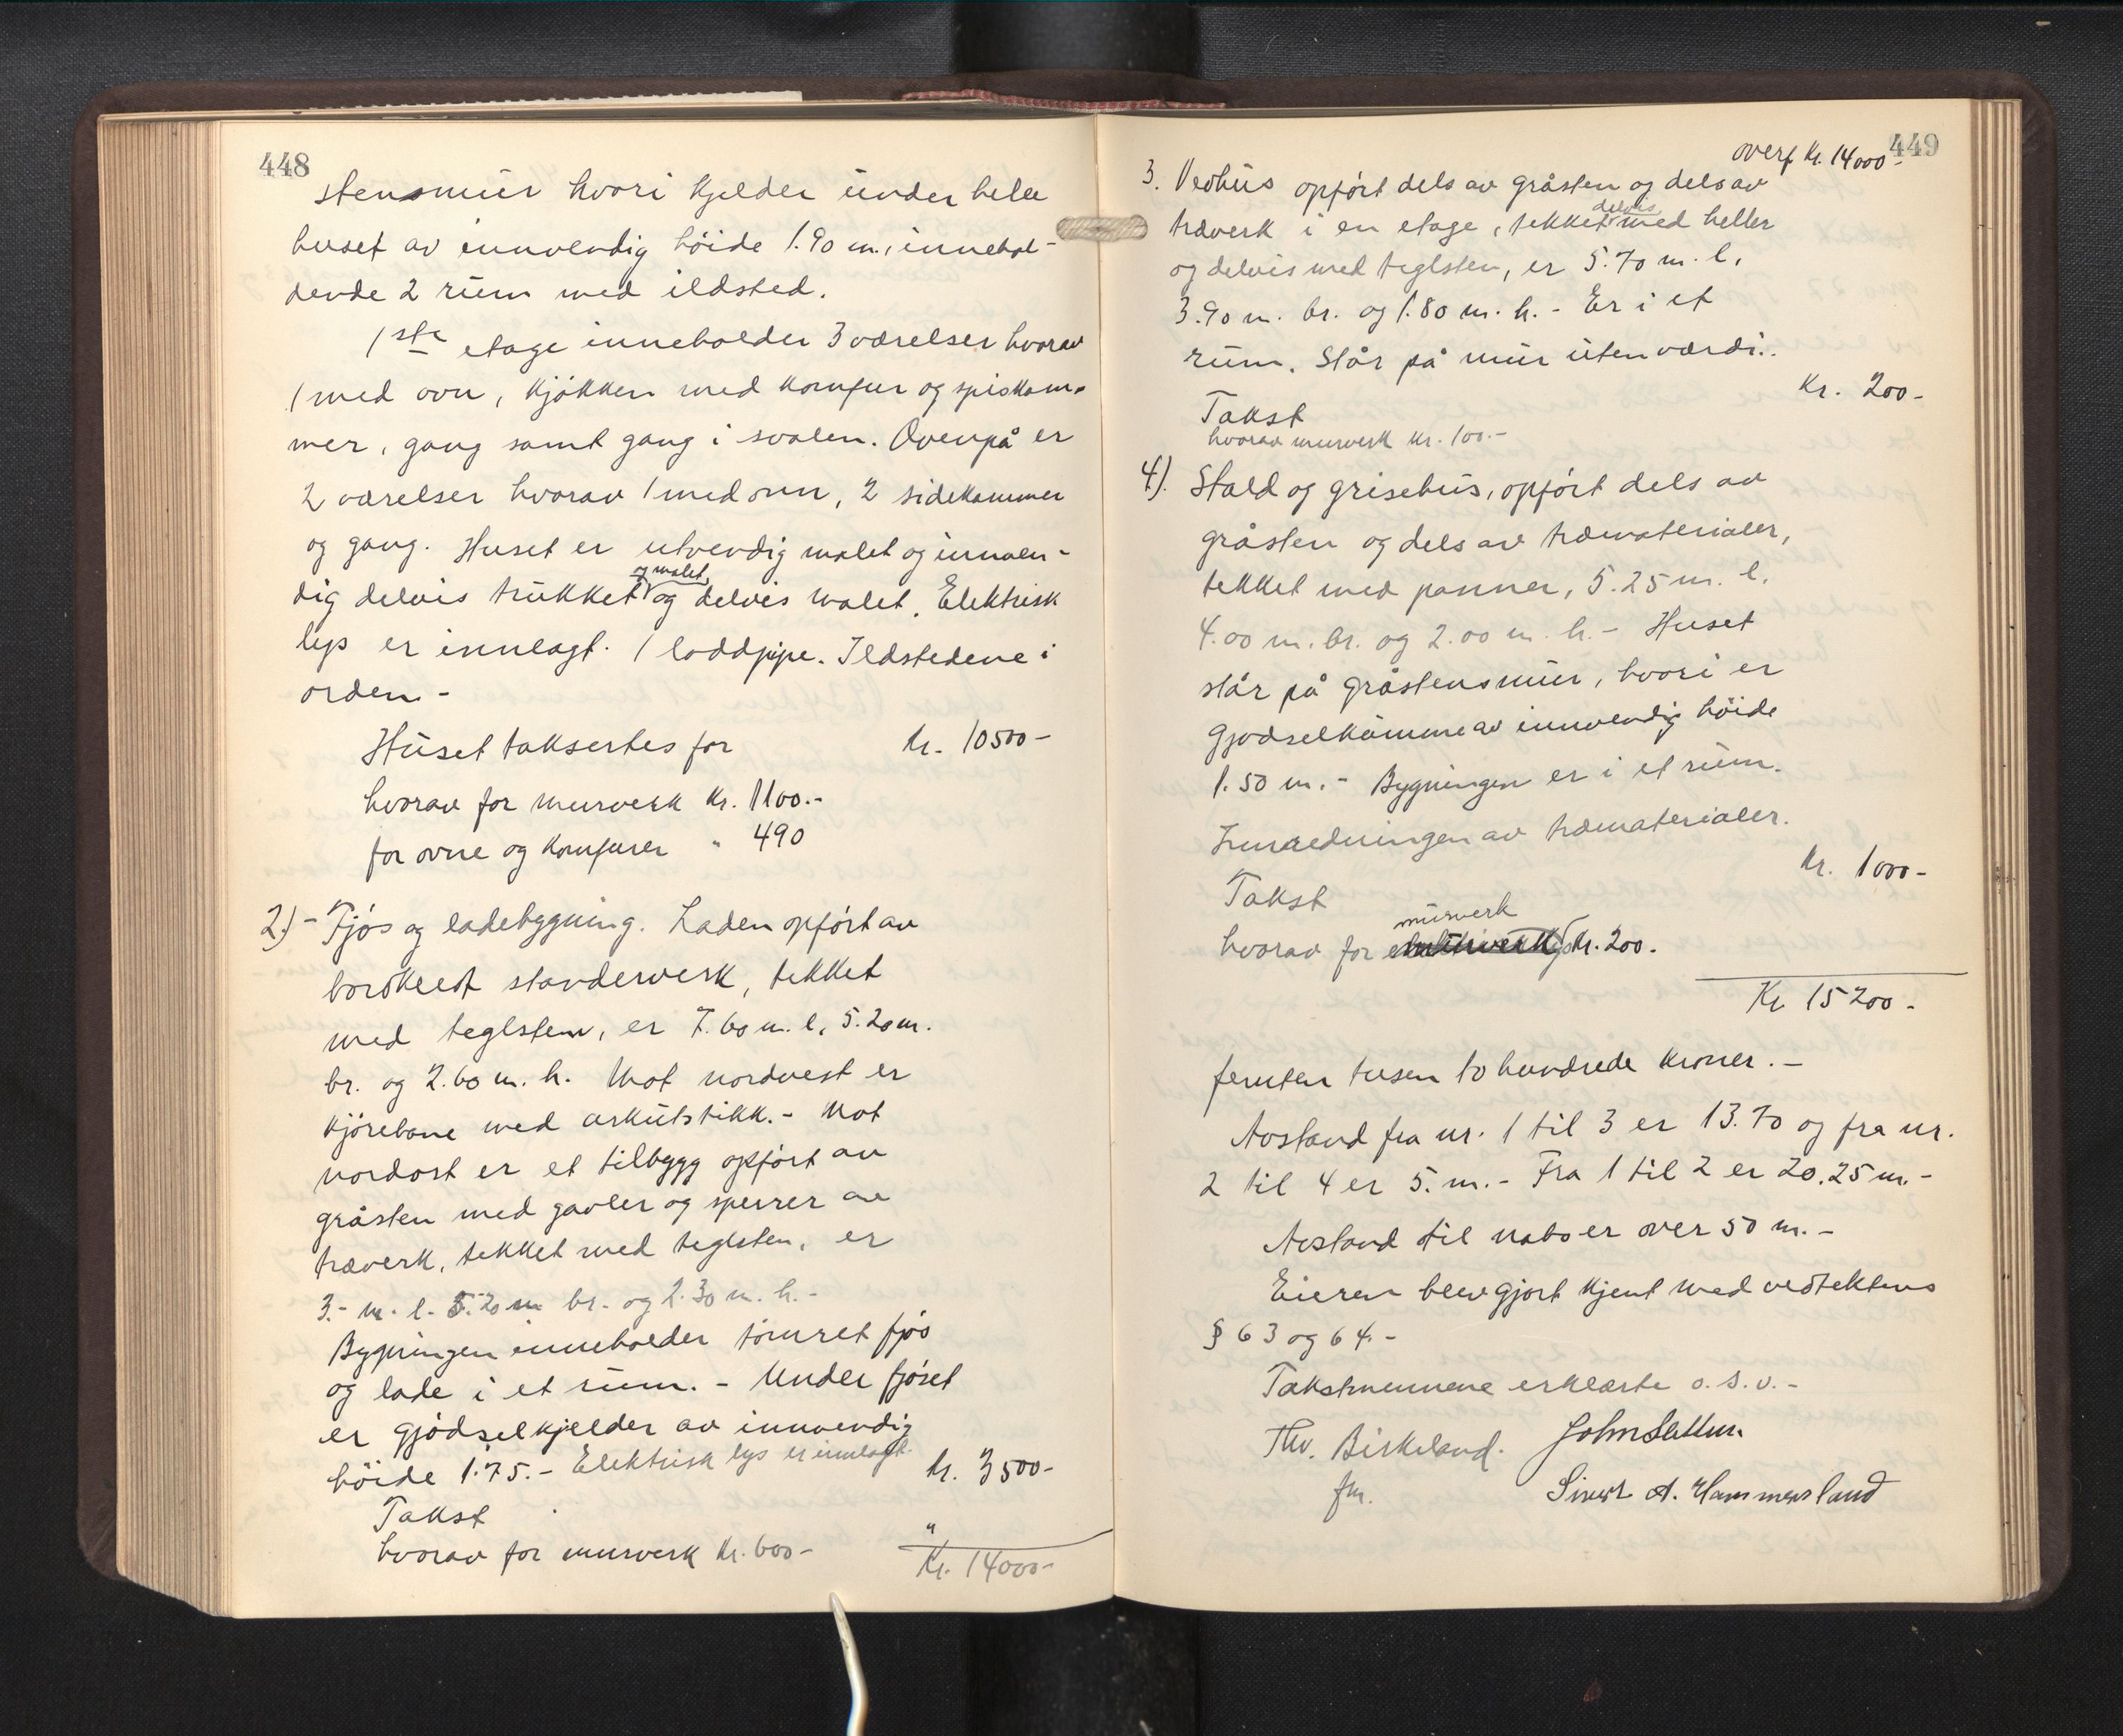 448
stensmur hvori kjelder under hele
huset av innvendig höide 1.90 m., innehol-
dende 2 rum med ildsted.
1ste etage inneholder 3 værelser hvorav
1 med ovn, kjökken med komfur og spiskam-
mer, gang samt gang i svalen. Ovenpå er
2 værelser hvorav 1 med ovn, 2 sidekammer
og gang. Huset er utvendig malet og innven-
og malet
dig delvis trukket og delvis malet. Elektrisk
lys er innlagt. 1 loddpipe. Ildstedene i
orden. -
Huset taksertes for kr. 10500-
hvorav for murverk kr. 1100.-
for ovne og komfurer " 490
2.) - Fjös og ladebygning. Laden opfört av
bordkledt standerverk, tekket
med teglsten, er 7.60 m. l. 5.20 m.
br. og 2.60 m. h. Mot nordvest er
kjörebane med arkutstikk. - Mot
nordost er et tilbygg opfört av
gråsten med gavler og sperrer av
træverk, tekket med teglsten, er
3.- m. l. 5.20 m br. og 2.30 m. h. -
Bygningen inneholder tömret fjös
og lade i et rum. - Under fjöset
er gjödselkjelder av innvendig
höide 1.75. - Elektrisk lys er innlagt.
kr. 3500-
Takst
hvorav for murverk kr. 600- "
Kr. 14000-
449
overf kr. 14000-
3. Vedhus opfört dels av gråsten og dels av
delvis
træverk i en etage, tekket med heller
og delvis med teglsten, er 5.70 m. l.
3.90 m. br. og 1.80 m. h. - Er i et
rum. Står på mur uten værdi..
Takst Kr. 200-
hvorav murverk kr. 100.-
4). Stald og grisehus, opfört dels av
gråsten og dels av træmaterialer,
tekket med panner, 5.25 m. l.
4.00 m. br. og 2.00 m. h. - Huset
står på gråstensmur, hvori er
gjødselkumme av innvendig höide
1.50 m. - Bygningen er i et rum.
Innredningen av træmaterialer.
Takst kr. 1000-
murverk
hvorav for kr. 200.
Kr 15200-
femten tusen to hundrede kroner. -
Avstand fra nr. 1 til 3 er 13.70 og fra nr.
2 til 4 er 5. m. - Fra 1 til 2 er 20.25 m. -
Avstand til nabo er over 50 m. -
Eieren blev gjort kjent med vedtektens
§ 63 og 64. -
Takstmennene erklærte o. s. v. -
Thv. Birkeland. John
fm. Sivert A. Hammersland